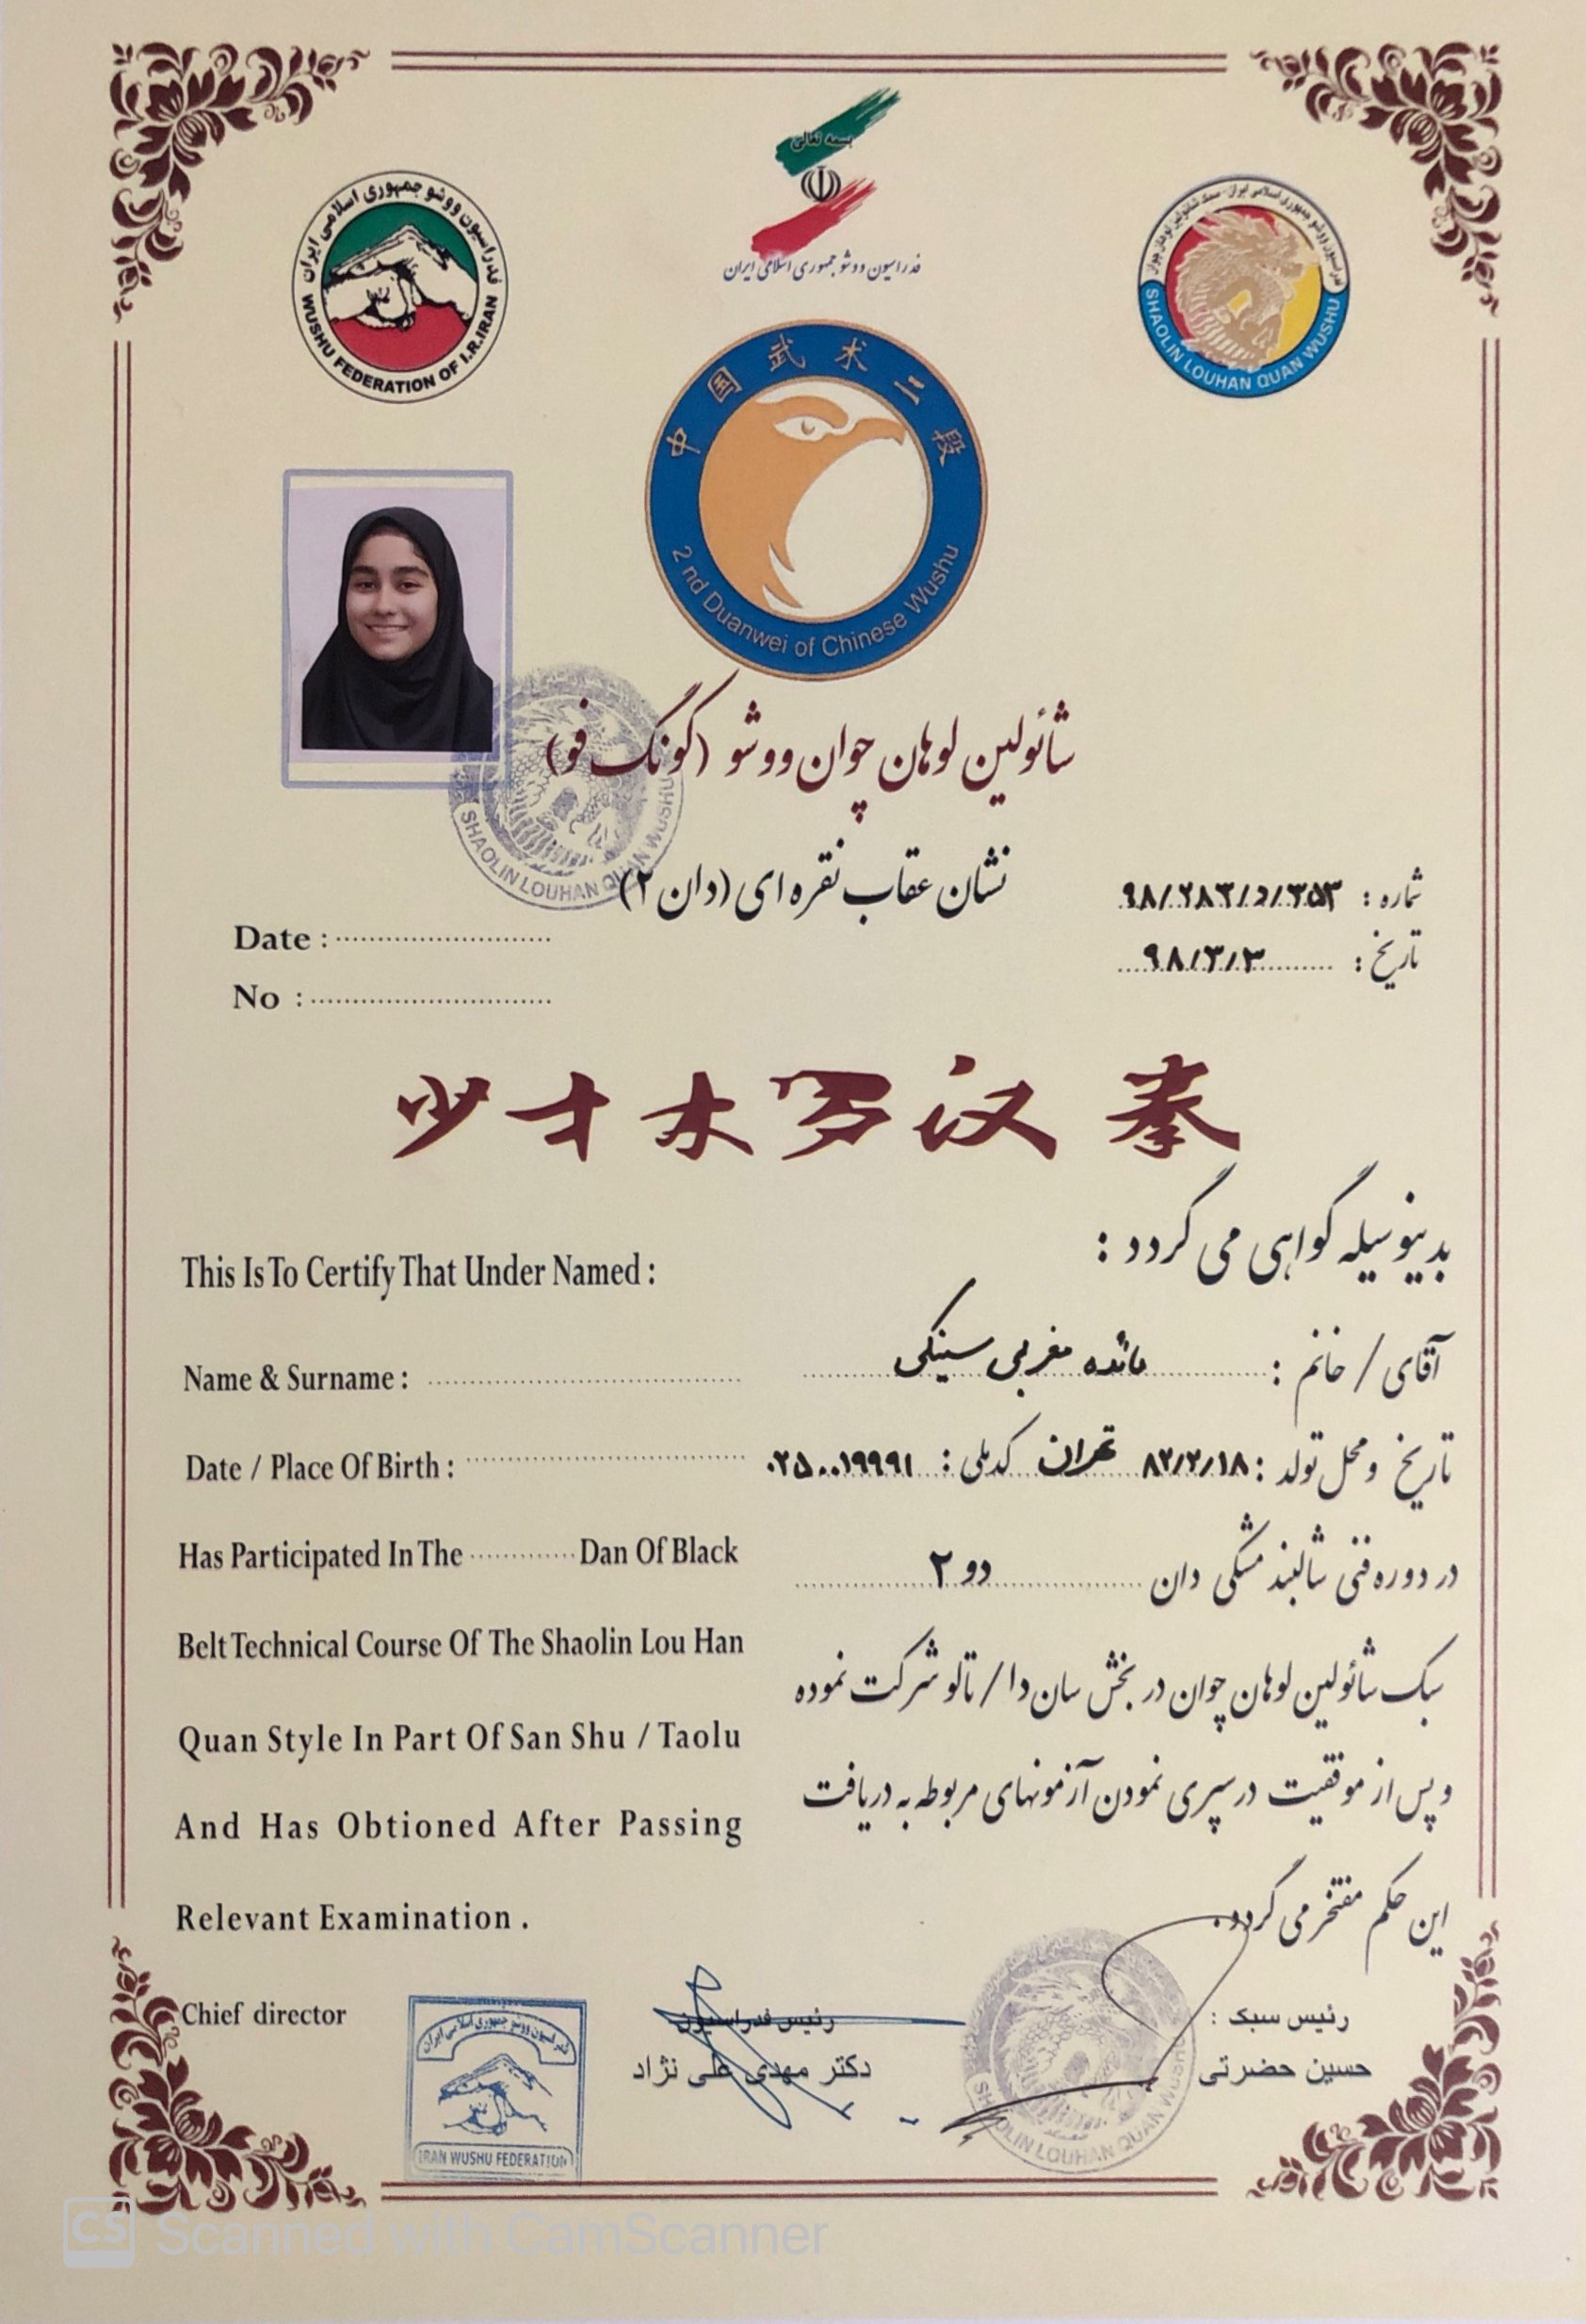 بسمه تعالی
فدراسیون ووشو جمهوری اسلامی ایران
فدراسیون ووشو جمهوری اسلامی ایران
WUSHU FEDERATION OF I.R.IRAN
SHAOLIN LOUHAN QUAN WUSHU
中国武术二段
2 nd Duanwei of Chinese Wushu
شائولین لوهان چوان ووشو (کونگ فو)
SHAOLIN LOUHAN QUAN WUSHU
نشان عقاب نقره ای (دان ۲)
شماره : ۹۸/۲۸۳/د/۳۵۳
تاریخ : ۹۸/۳/۳
Date :
No :
少才木罗汉拳
بدینوسیله گواهی می گردد :
This Is To Certify That Under Named :
آقای / خانم : مائده مغربی سینکی
Name & Surname :
تاریخ و محل تولد : ۸۲/۲/۱۸ تهران کدملی : ۰۲۵۰۰۱۹۹۹۱
Date / Place Of Birth :
در دوره فنی شالبند مشکی دان دو ۲
Has Participated In The Dan Of Black
سبک شائولین لوهان چوان در بخش سان دا / تالو شرکت نموده
Belt Technical Course Of The Shaolin Lou Han
و پس از موفقیت در سپری نمودن آزمونهای مربوطه به دریافت
Quan Style In Part Of San Shu / Taolu
این حکم مفتخر می گردد.
And Has Obtioned After Passing
Relevant Examination .
رئیس سبک :
حسین حضرتی
رئیس فدراسیون
دکتر مهدی علی نژاد
Chief director
فدراسیون ووشو جمهوری اسلامی ایران
IRAN WUSHU FEDERATION
SHAOLIN LOUHAN QUAN WUSHU
CS Scanned with CamScanner